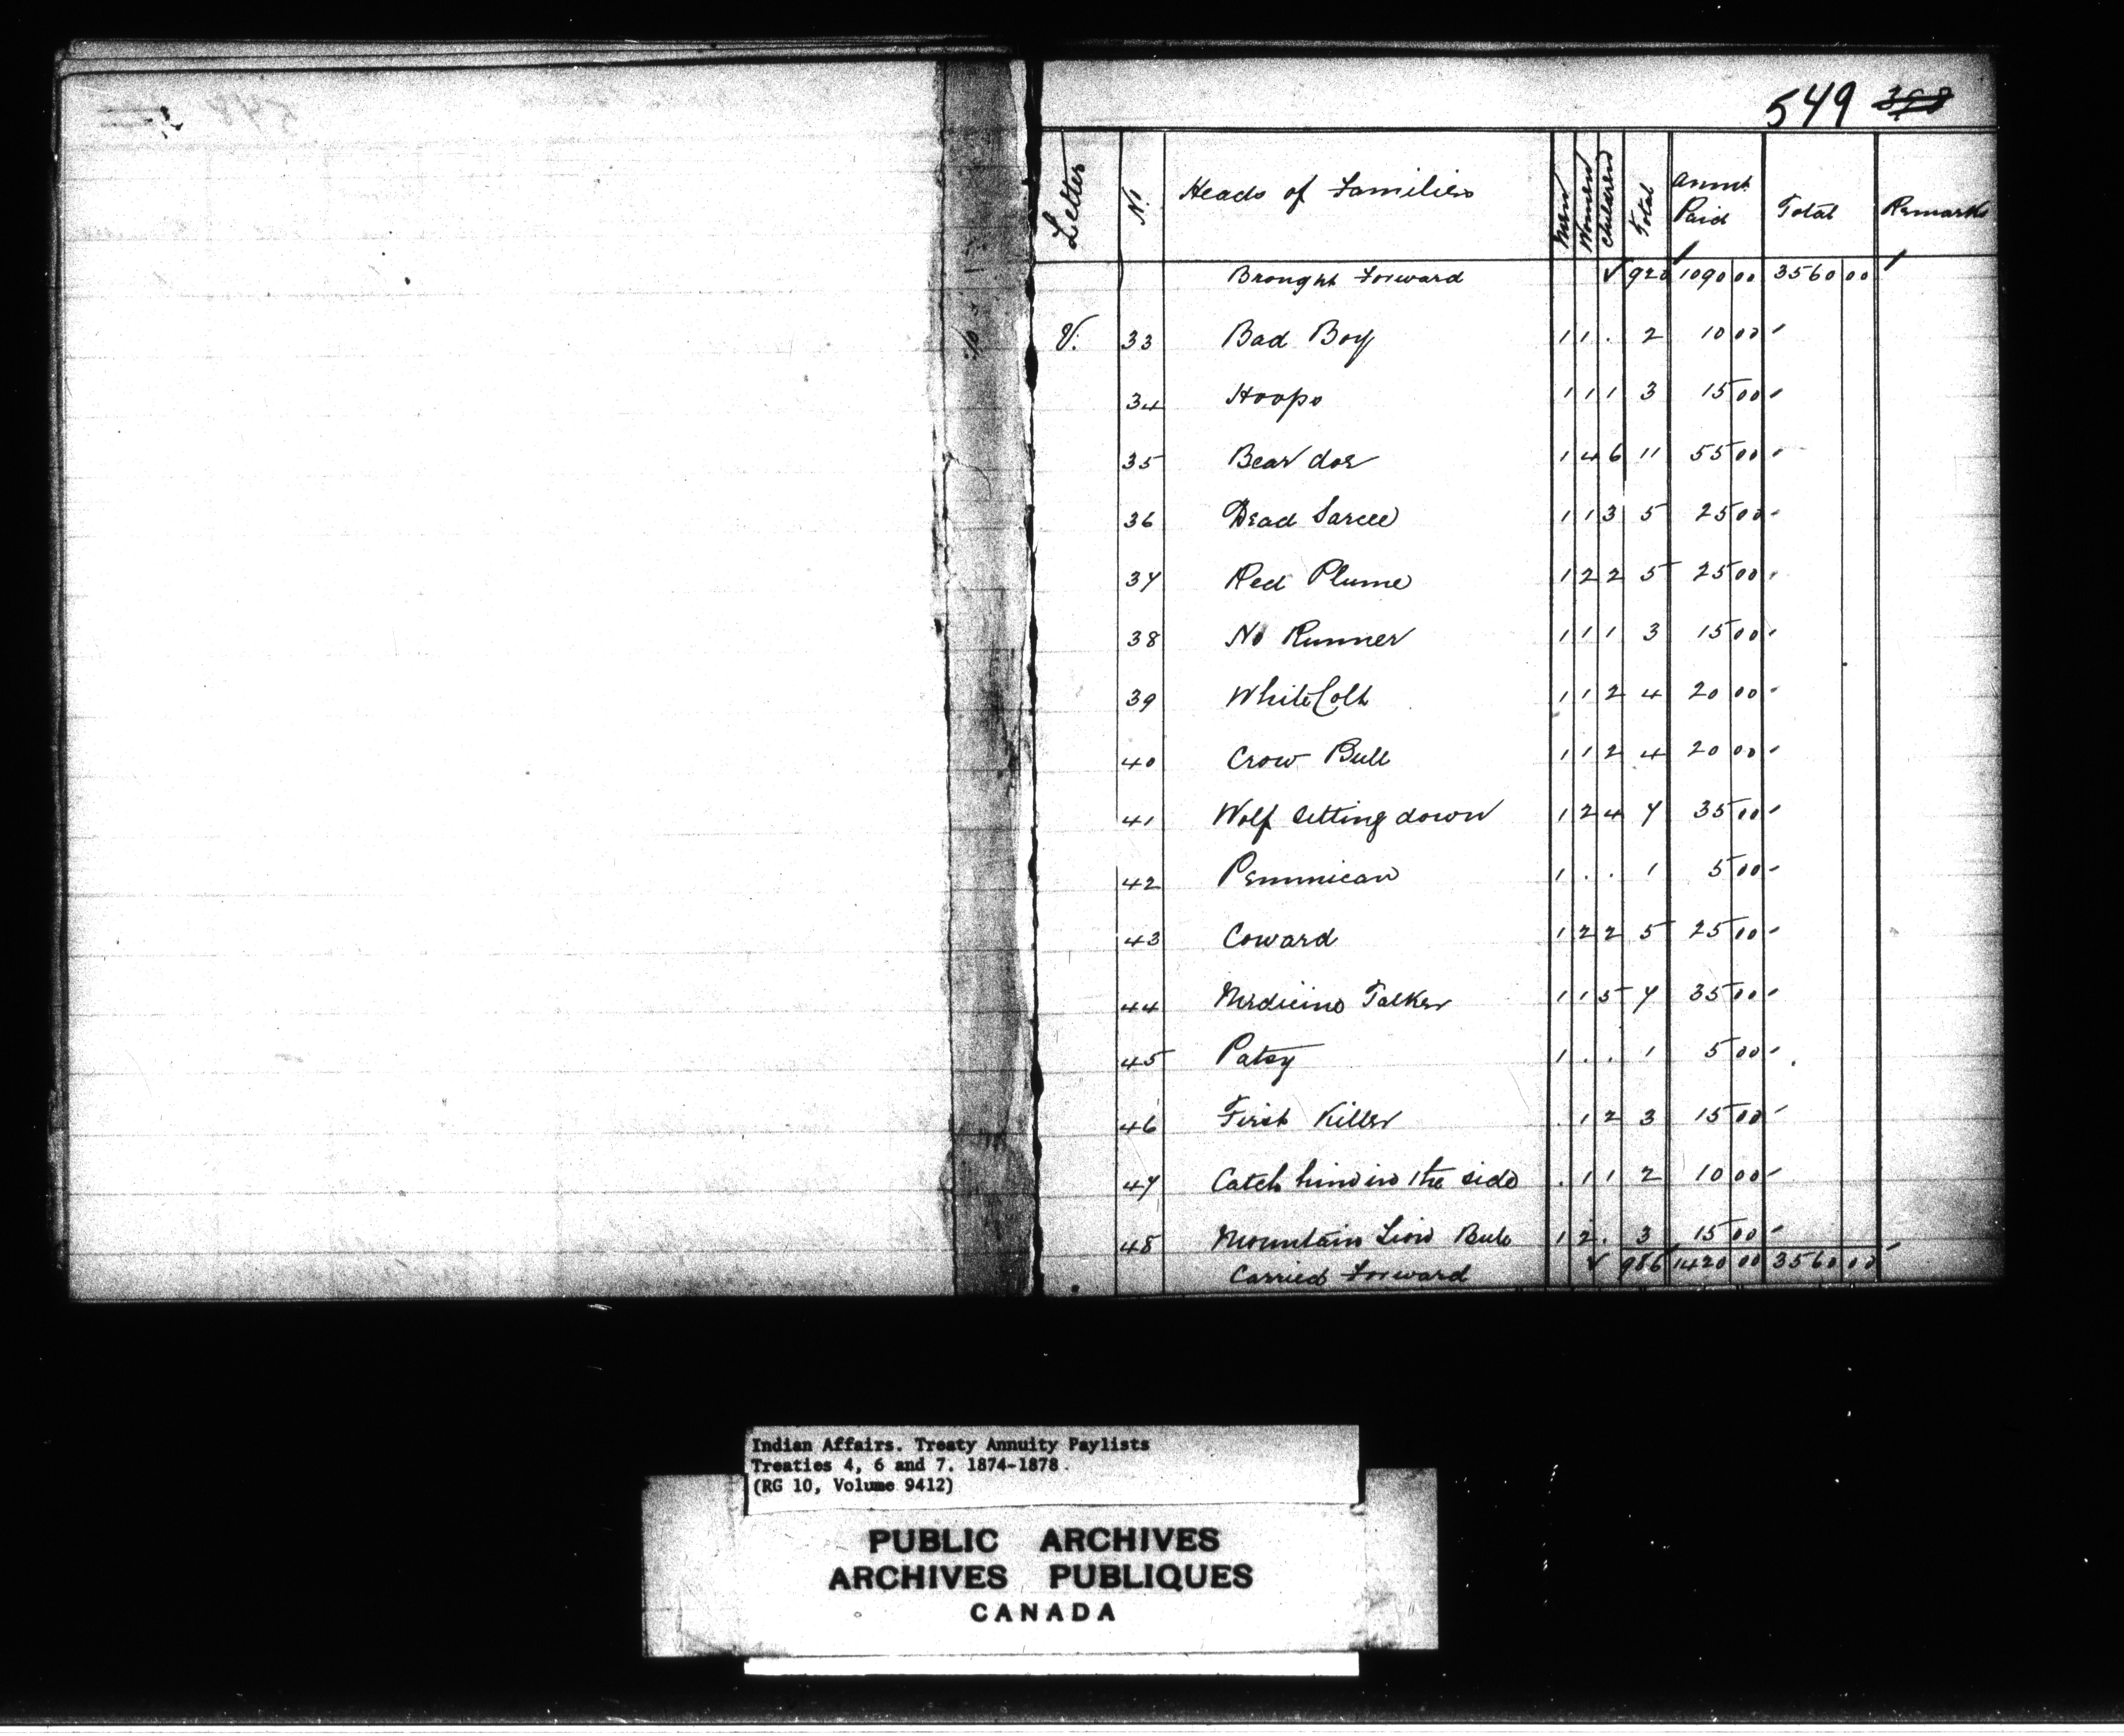 549
Letter No. Heads of Families Men Women Children Total Annut Paid Total Remarks
Brought Forward 920 1090 00 3560 00
V. 33 Bad Boy 1 1 . 2 10 00
34 Hoops 1 1 1 3 15 00
35 Bear dos 1 4 6 11 55 00
36 Dead Sarcee 1 1 3 5 25 00
37 Red Plume 1 2 2 5 25 00
38 No Runner 1 1 1 3 15 00
39 White Colt 1 1 2 4 20 00
40 Crow Bull 1 1 2 4 20 00
41 Wolf Sitting down 1 2 4 7 35 00
42 Pemmican 1 . . 1 5 00
43 Coward 1 2 2 5 25 00
44 Medicine Talker 1 1 5 7 35 00
45 Patsy 1 . . 1 5 00
46 First Killer . 1 2 3 15 00
47 Catch him in the side . 1 1 2 10 00
48 Mountain Lion Bull 1 2 . 3 15 00
Carried Forward 986 1420 00 3560 00
Indian Affairs. Treaty Annuity Paylists
Treaties 4, 6 and 7. 1874-1878
(RG 10, Volume 9412)
PUBLIC ARCHIVES
ARCHIVES PUBLIQUES
CANADA